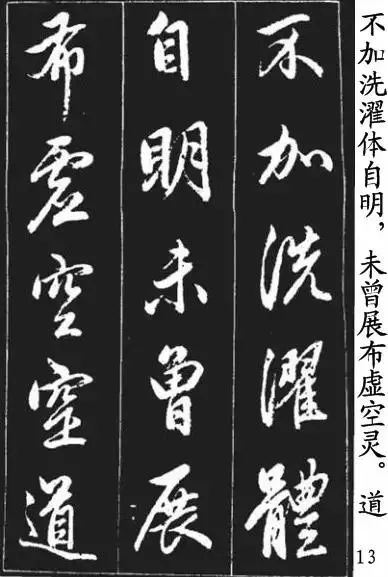 不加洗濯体自明，未曾展布虚空灵。道
13
不加洗濯體
自明未曾展
布虛空靈道